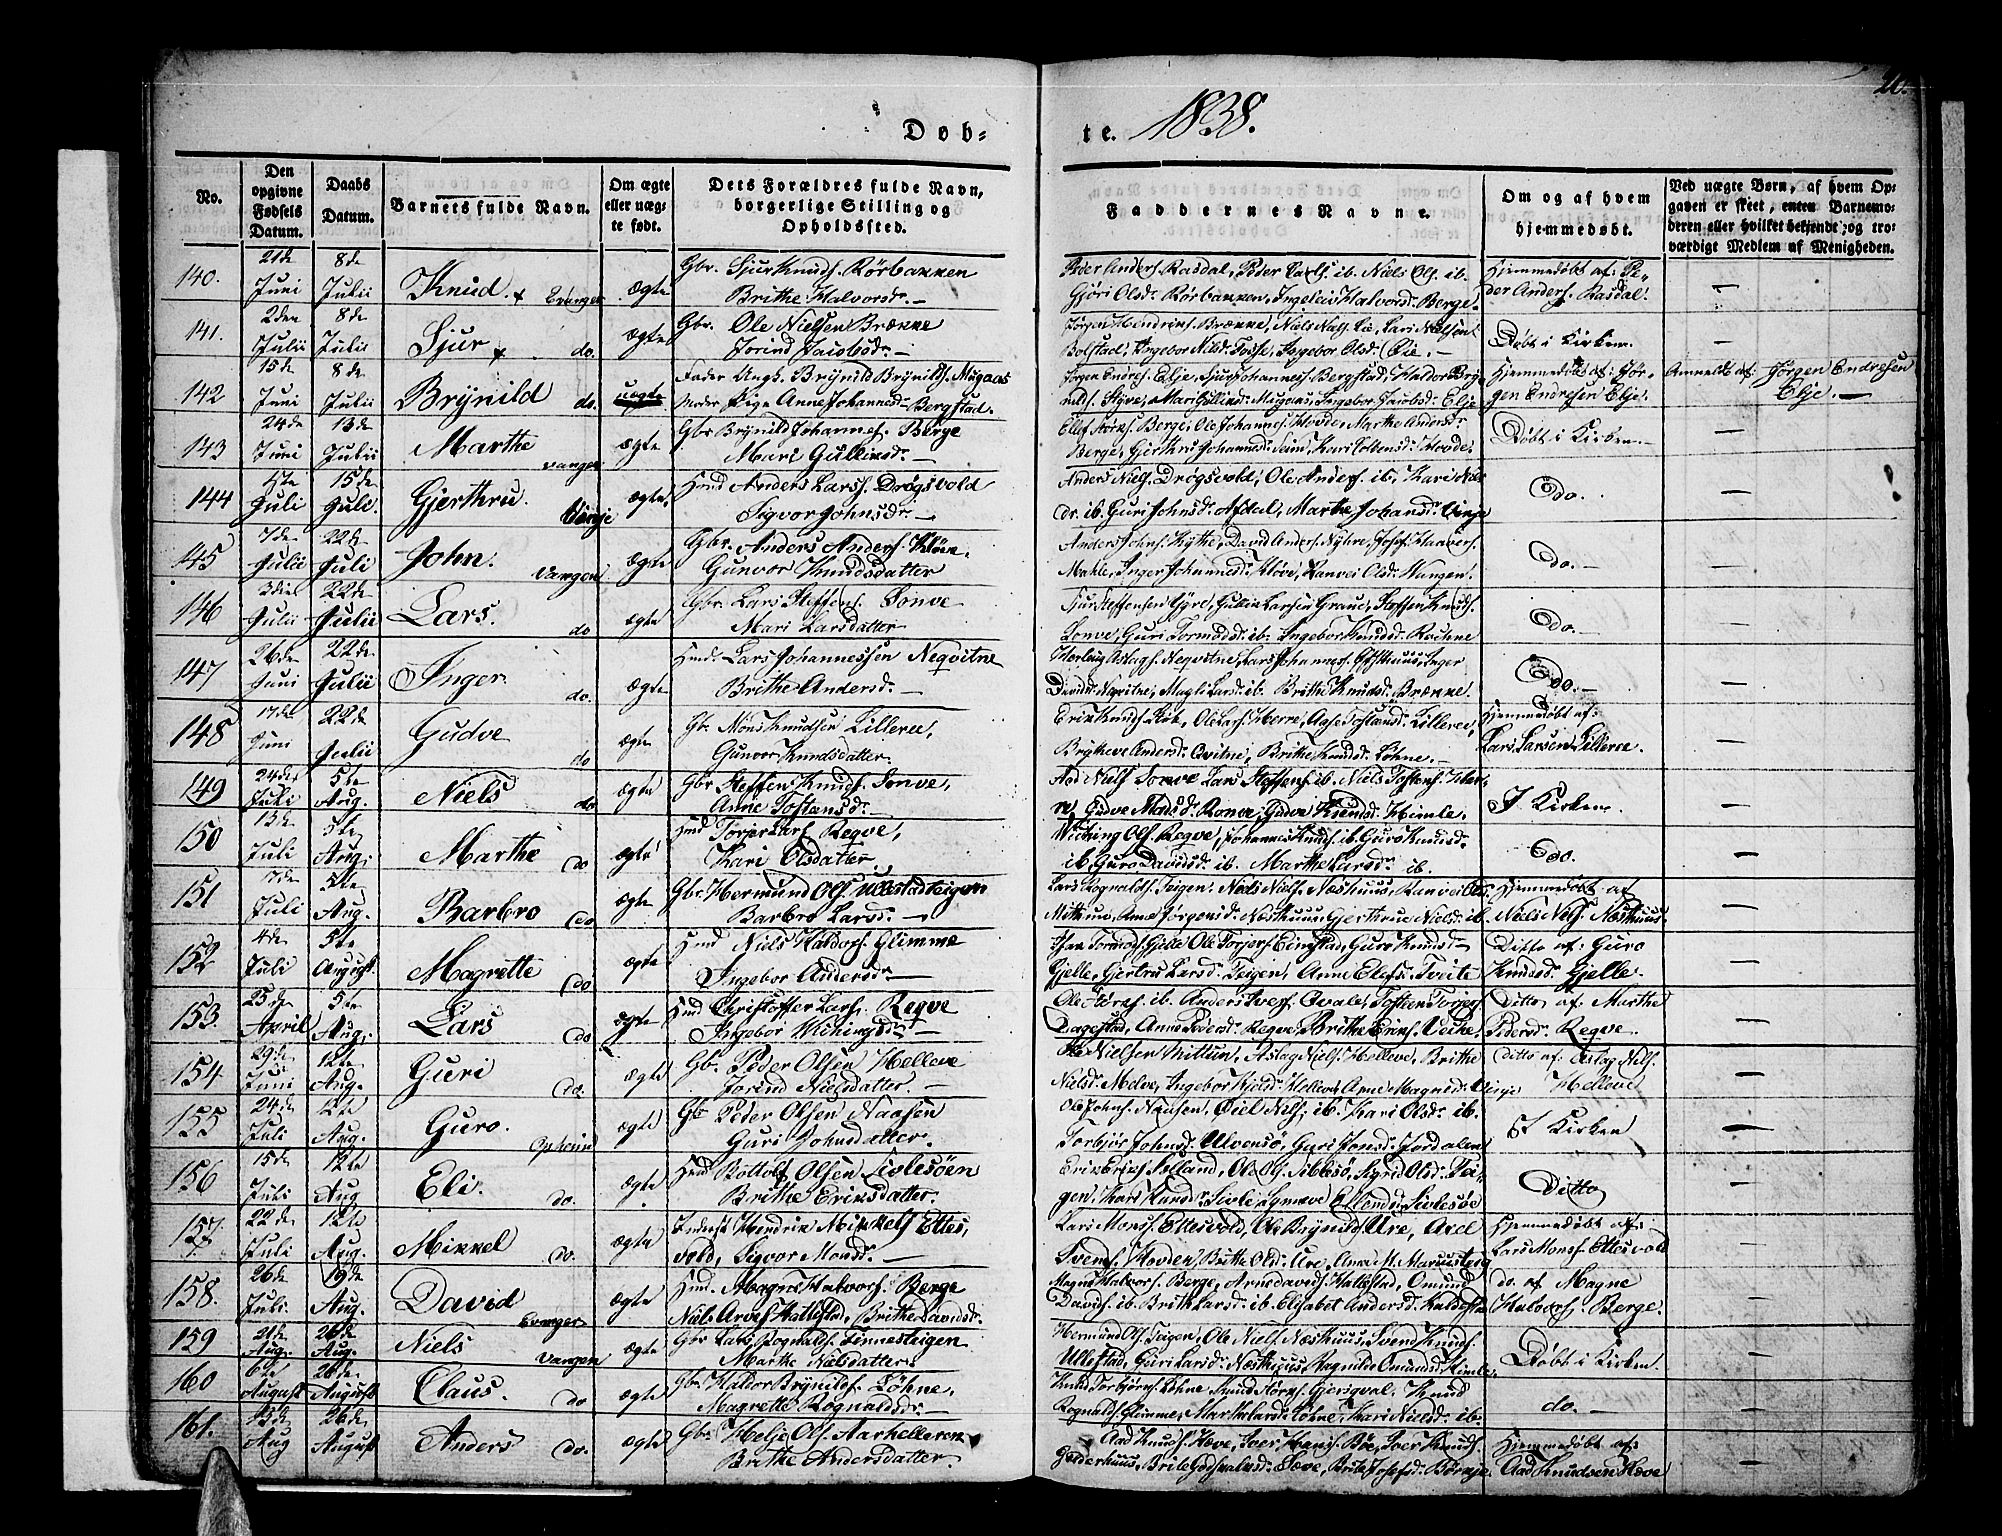 20.
Døb-
te. 1838.
No.
Den opgivne Fødsels Datum.
Daabs Datum.
Barnets fulde Navn.
Om ægte eller uægte født.
Dets Forældres fulde Navn, borgerlige Stilling og Opholdssted.
Faddernes Navne.
Om og af hvem hjemmedøbt.
Ved uægte Børn, af hvem Opgaven er skeet, enten Barnemoderen eller hvilket bekjendt og troværdigt Medlem af Menigheden.
140. 21de Juni 8de Julii Knud Evanger ægte Gbr. Sjur Knuds. Rörbakken
Brithe Halvorsdr.
Peder Anders. Rasdal, Peder Larss. ib. Niels Ols. ib.
Gjöri Olsdr. Rörbakken, Ingeleiv Halvorsd. Berge.
Hjemmedöbt af: Pe-
der Anders. Rasdal. —
141. 2den Julii 8de Julii Sjur do. ægte Gbr. Ole Nielsen Brække
Jorind Jacobsdr.
Jörgen Hendriks. Brække, Niels Niels. Lie, Lars Nielsen
Bolstad, Ingebor Nilsd. Fosse, Ingebor Olsd.
Döbt i Kirken. —
142 15de Juni 8de Julii Brÿnild do. uægte Fader Ungk. Brÿnild Brÿnilds. Mugaas
Moder Pige Anne Johannesdr. Bergstad.
Jörgen Endres. Elje, Sjur Johanness. Bergstad, Haldor Brÿ-
nilds. Styve, Mari Mugaas, Ingebor Jacobsd. Elje
Hjemmedöbt af: Jör-
gen Endresen Elje.
Anmeldt af: Jörgen Endresen
Elje. —
143 24de Juni 13de Julii Marthe Vangen ægte Gbr Brÿnild Johannes. Berge
Mari Gulliksdr.
Berge, Ole Johannes. Hovde, Marthe Andersdr.
Berge, Gjerthru Johannesd. Seim, Kari Hovde.
Döbt i Kirken. —
144 Juli 15de Juli. Gjerthru Vinje ægte. Hmd Anders Larss. Drögsvold
Sigvor Johnsdr.
Anders Niels. Drögsvold, Ole Anders. ib, Kari Niels
dr. ib. Guri Johnsd. Afdal, Marthe Johansd. Vinje
Do. —
145 7de Julii 22de Juli John. Vangen ægte Gbr. Anders Anders. Klöve.
Gunvor Knudsdatter
Anders Johns. Kÿthe, David Anders. Nÿhre, Josef
Mahle, Inger Johannesd. Klöve, Ranvei Olsd.
Do. —
146 Julii 22de Julii Lars. do ægte Gbr. Lars Steffens. Sonve
Mari Larsdatter
Sjur Steffensen Gjöre, Gullik Larsen Graue, Steffen Knuds.
Sonve, Guri Tormodsd. ib. Ingebor Knudsd.
Do. —
147 26de Juni 22de Julii Inger. do. ægte Hmd. Lars Johannessen Neqvitne
Brithe Andersd.
Herlaug Aslags. Neqvitne, Lars Johannes. Inger
Davidsd. Neqvitne, Magli Larsd. ib. Brithe Knudsd. Brække.
Do. —
148 17de Juni 22de Julii Gudve do ægte Gbr. Möns Knudsen Lilleree,
Gunvor Knudsdatter.
Erik Knuds. Ole Lars. Herre, Aase Tostensd. Lilleree,
Brÿtheve Andersd. Qvitne, Brithe Knudsd. Löhne.
Hjemmedöbt af:
Lars Larsen Lilleree. —
149 24de Juli 5te Aug. Niels do. ægte Gbr Steffen Knuds. Sonve,
Anne Tostensdr.
Aad Niels. Sonve Lars Steffens. ib. Niels Tostens.
Gudve Madsdr. Ronve, Gudve Knudsd. Himle.
I Kirken. —
150 13de Juli 5te Aug. Marthe do ægte Hmd Torjer Lars. Reqve,
Kari Olsdatter
Wiching Ols. Reqve, Johannes Knuds. ib. Guro Knudsd.
ib. Guro Davidsd. ib. Marthe Larsd. ib.
Do. —
151 7de Juli 5te Aug. Barbro do ægte Gbr. Hermund Ols. Ullestadteigen
Barbro Larsd.
Lars Rognalds. Teigen. Niels Niels. Næshuus, Ranvei Ols
Anne Jörgensd. Næshuus, Gjerthrue Nielsd. ib.
Hjemmedöbt af
Niels Niels. Næshuus. —
152 4de Juli 5te August. Magrette do ægte Hmd Niels Haldors. Glimme
Ingebor Andersdr.
Tormods. Gjelle Ole Torjers. Guro Knudsd.
Gjelle, Gjertru Larsd. Teigen, Anne Elefs. Tveite
Ditto af: Guro
Knudsd. Gjelle. —
153. 25de April 5te Aug. Lars do ægte Hmd Christoffer Lars. Reqve
Ingebor Wichingsdr.
ib. Anders Ivers. Qvale, Tosten Torjers.
Dagestad, Anne Pedersd. Reqve, Brithe Eriks.
Ditto af Marthe
Pedersd. Reqve. —
154 29de Juni 12te Aug. Guri do. ægte Gb. Peder Olsen Helleve
Jorind Nielsdatter
Nielsen Mittun, Aslag Niels. Helleve, Brithe
Nielsd. Melve, Ingebor Helleve, Anne Magnesd. Vinje
ditto af: Aslag Niels.
Helleve —
155 24de Juli 12te Aug. Guro. Opheim ægte Gb Peder Olsen Naasen
Guri Johnsdatter.
Ole Johns. Naasen, Niels. ib. Kari Olsd. ib.
Torbjör Johnsd. Ulvensö, Guri Jonsd. Jordalen
I Kirken —
156 15de Juli 12te Aug Eli. do. ægte Hmd Bottolf Olsen Sivlesöen
Brithe Eriksdatter.
Erik Eriks. Selland, Ole Ols. Siblesö, Sigri Olsd. Tei-
gen, Kari Knudsd. Sivle Sivlesöe
Ditto —
157. 22de Juli 12te Aug. Mikkel do. ægte Inderst Hendrik Mikkels. Ettes-
vold, Sigvor Monsd.
Lars Mons. Ettesvold, Ole Brÿnilds. Ure, Axel
Svends. Hovden, Brithe Olsd. Ure, Anna M.
Hjemmedöbt af:
Lars Mons. Ettesvold
158. 26de Juli. 19de Aug. David Evanger ægte Hmd. Magne Halvors. Berge
Niels Arves. Hallestad, Brithe Davidsd.
Magne Halvors. Berge, Arne Davids. Hallestad, Omund
Davids. ib. Brithe Larsd. ib. Elisabet Andersd.
do. af Magne
Halvors. Berge. —
159 21de Aug. 26de Aug. Niels Vangen ægte Gbr Lars Rognalds. Finnesteigen
Marthe Nielsdatter.
Hermund Ols. Teigen, Ole Niels. Næshuus, Svend Knuds.
Ullestad, Guri Larsd. Næshuus, Ragnilde Omundsd. Himle.
Döbt i Kirken. —
160 6te August 26de August Claus. do ægte Gbr. Haldor Brÿnilds. Löhne,
Magrette Rognaldsdr.
Knud Torbjörns. Löhne Knud Störks. Gjersqval. Knud
Rognalds. Glimme, Martha Larsd. Löhne, Kari Nielsd. ib.
do. —
161. 13de Aug 26de August Anders do. ægte Gbr Helje Ols. Aarhelleren
Brithe Andersdatter.
Aad Knuds. Hæve, Iver Hans. Böe, Iver Knuds.
Gjelderhuus, Brite Godskalksd. Sæve, Brite Josefsd.
Hjemmedöbt af:
Aad Knudsen Hæve —